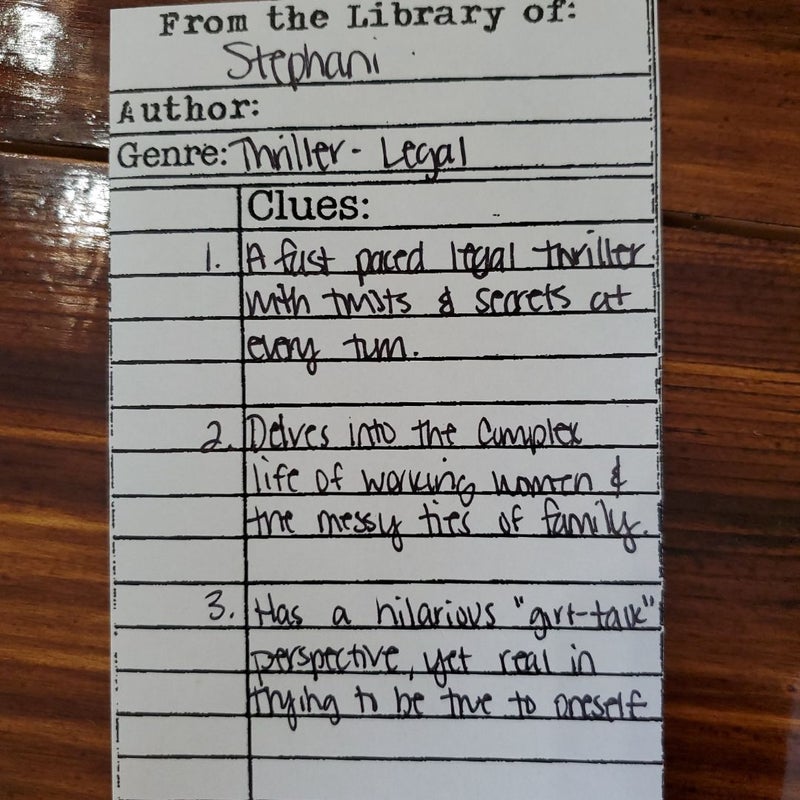 From the Library of:
Stephani
Author:
Genre: Thriller - Legal
Clues:
1. A fast paced legal thriller
with twists & secrets at
every turn.
2. Delves into the complex
life of working women &
the messy ties of family.
3. Has a hilarious "girl-talk"
perspective, yet real in
trying to be true to oneself